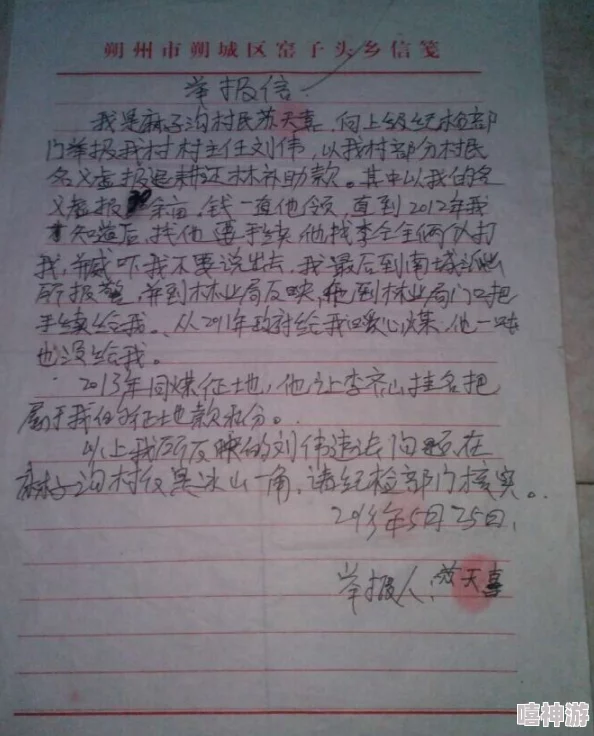 朔州市朔城区窑子头乡信笺
举报信
我是麻子沟村民苏天喜,向上级纪检部
门举报我村村主任刘伟,以我村部分村民
名义虚报退耕还林补助款。其中以我的名
义虚报 余亩,钱一直他领,直到2012年我
才知道后,找他要手续他找李全全俩人打
我,并威吓我不要说出去,我最后到南城派出
所报警,并到林业局反映,他到林业局门口把
手续给我。从2011年政府给我村暖心煤,他一吨
也没给我。
2013年同煤征地,他让李齐山挂名把
属于我们的征地款私分。
以上我所反映的刘伟违法问题在
麻子沟村仅是冰山一角,请纪检部门核实。
2013年5月25日,
举报人:苏天喜
嘻神游